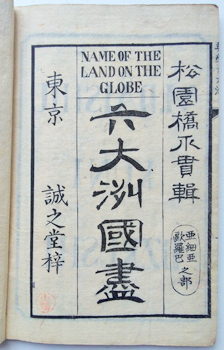 松園橋爪貫輯
亞細亞
歐羅巴
之部
NAME OF THE
LAND ON THE
GLOBE
六大洲國盡
東京 誠之堂梓